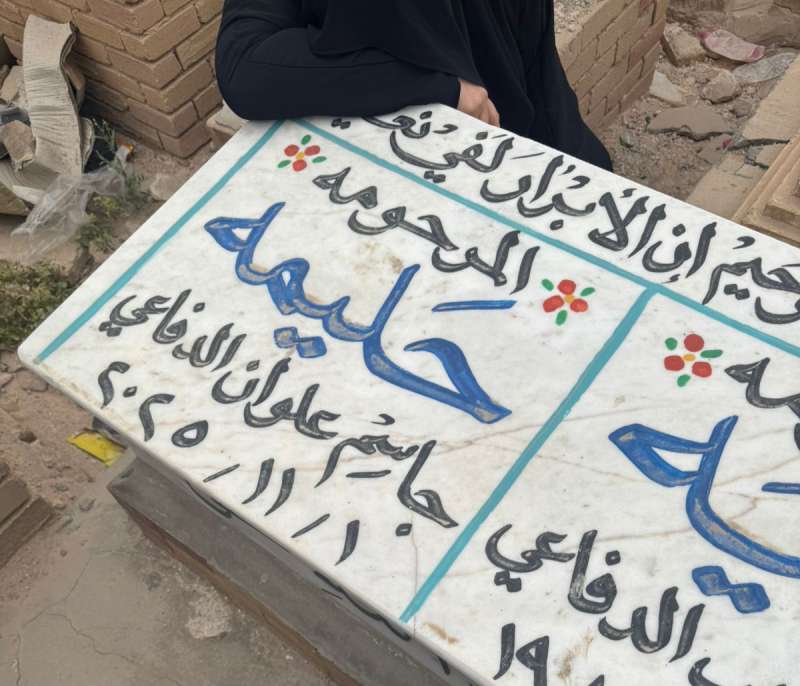 إن الأبرار لفي نعيم
المرحومه
حليمه
جاسم علوان الدفاعي
٢٠٢٥/١١/١
الدفاعي